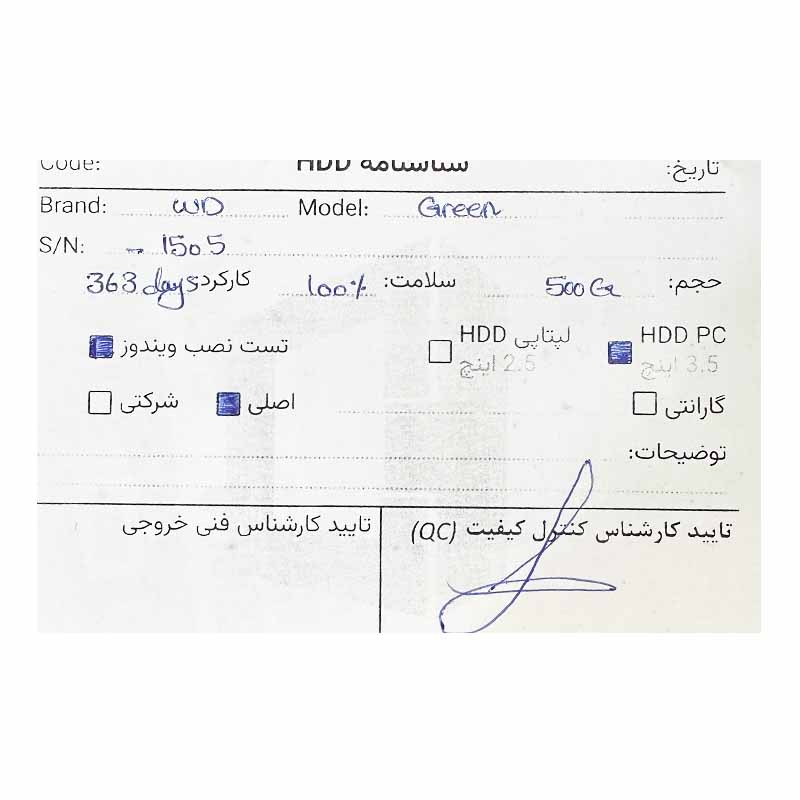 Code: شناسنامه HDD تاریخ:
Brand: WD Model: Green
S/N: 1505
حجم: 500 G سلامت: 100% کارکرد: 363 days
HDD PC 3.5 اینچ HDD لپتاپی 2.5 اینچ تست نصب ویندوز
گارانتی اصلی شرکتی
توضیحات:
تایید کارشناس کنترل کیفیت (QC) تایید کارشناس فنی خروجی